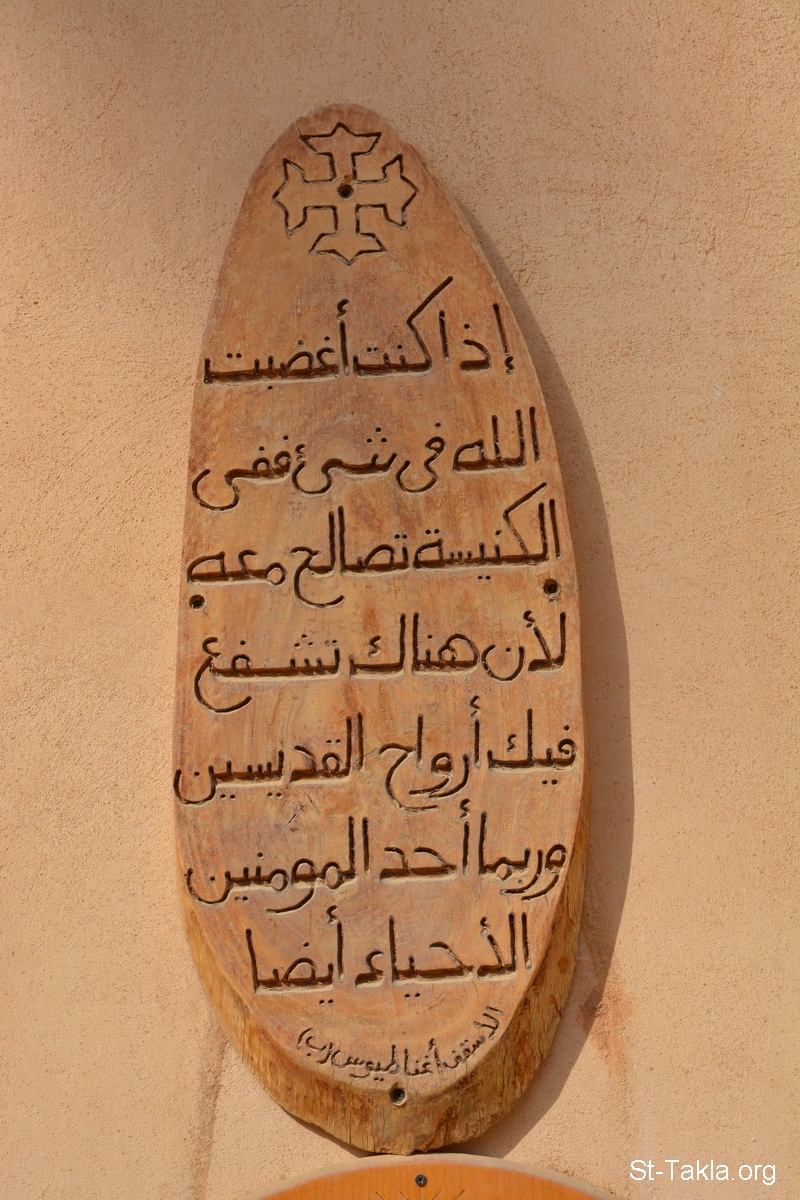 إذا كنت أغضبت
الله فى شئ ففى
الكنيسة تصالح معه
لأن هناك تشفع
فيك أرواح القديسين
وربما أحد المومنين
الأحياء أيضا
الأسقف أغناطيوس (ب)
St-Takla.org